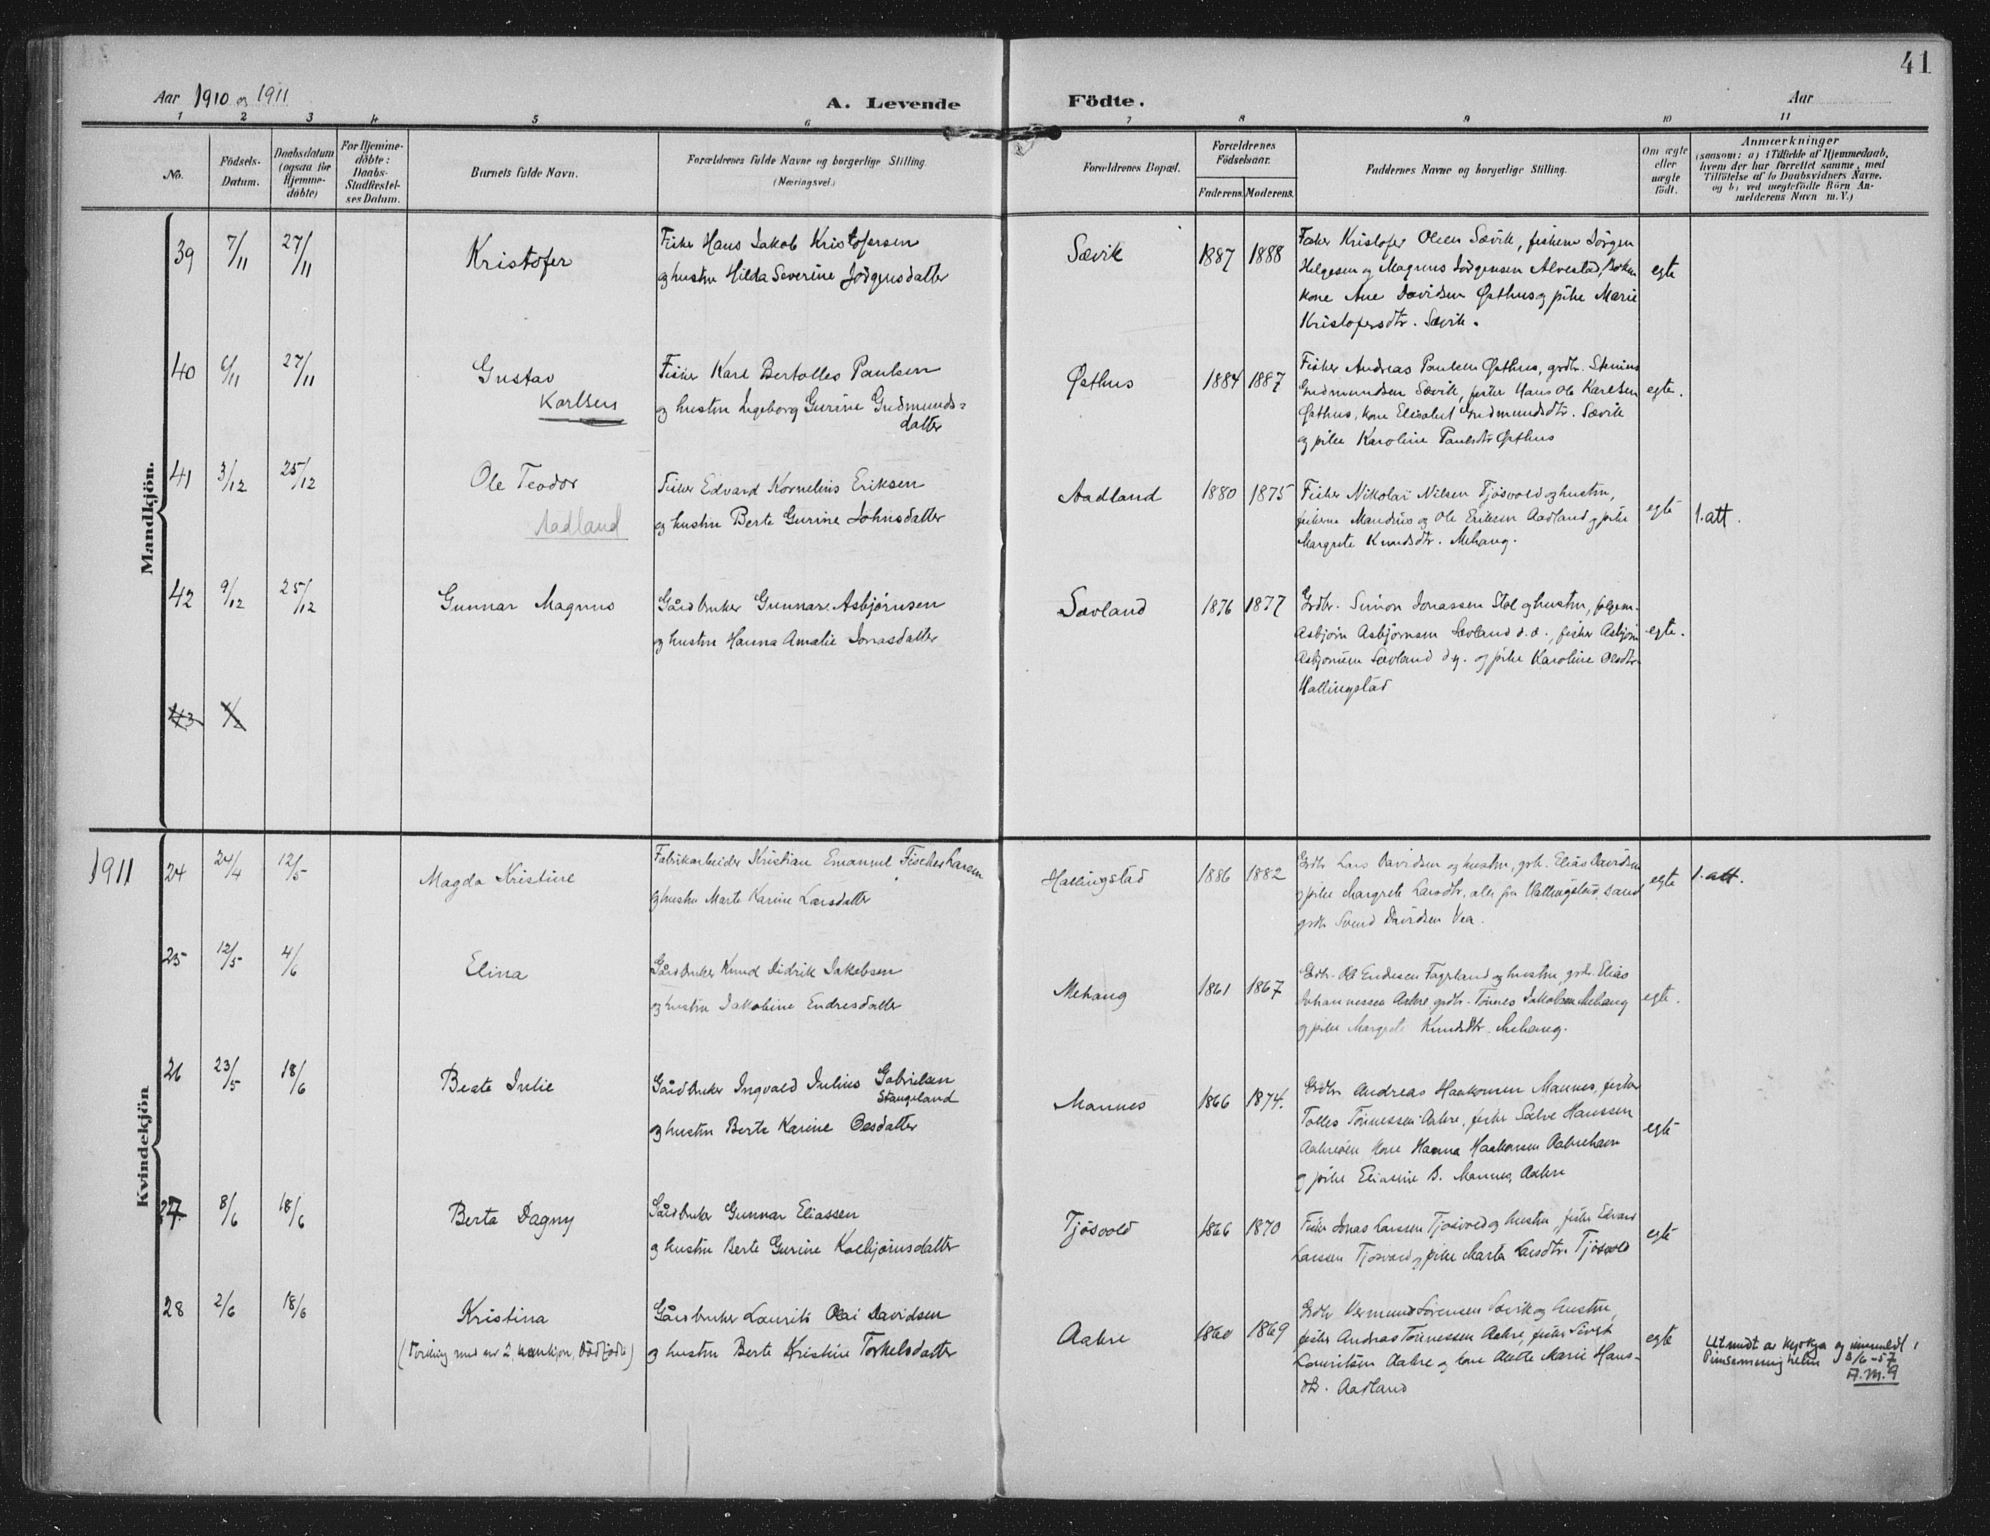 41
Aar 1910 og 1911
A. Levende Födte.
Aar
1 2 3 4 5 6 7 8 9 10 11
No.
Födsels-
Datum.
Daabsdatum
(ogsaa for
Hjemme-
döbte)
For Hjemme-
döbte:
Daabs-
Stadfæstel-
ses Datum.
Barnets fulde Navn.
Forældrenes fulde Navne og borgerlige Stilling
(Næringsvei.)
Forældrenes Bopæl.
Forældrenes
Födselsaar.
Faderens. Moderens.
Faddernes Navne og borgerlige Stilling.
Om ægte
eller
uægte
födt.
Anmærkninger
(saasom: a) i Tilfælde af Hjemmedaab,
hvem der har forrettet samme, med
Tilföielse af to Daabsvidners Navne.
og b) ved uægtefödte Börn An-
melderens Navn m. V.)
Mandkjön.
39 7/11 27/11 Kristofer
Fisker Hans Jakob Kristofersen
og hustru Hilda Severine Jørgensdatter
Sævik 1887 1888
Fisker Kristofer Olsen Sævik, fiskerne Jørgen
Helgesen og Magnus Jørgensen Alvestad, Bokn
kone Ane Davidsen Østhus og pike Marie
Kristofersdtr. Sævik.
egte
40 6/11 27/11 Gustav
Karlsen
Fisker Karl Bertolles Paulsen
og hustru Ingeborg Gurine Gudmunds=
datter
Østhus 1884 1887
Fisker Andreas Paulsen Østhus, grdbr.
Gudmundsen Sævik, fisker Hans Ole Karlsen
Østhus, kone Elisabet Gudmundsdtr. Sævik
og pike Karoline Paulsdtr Østhus
egte.
41 3/12 25/12 Ole Teodor
Aadland
Fisker Edvard Kornelius Eriksen
og hustru Berte Gurine Johnsdatter
Aadland 1880 1875
Fisker Nikolai Nilsen Tjøsvold og hustru,
fiskerne Mandius og Ole Eriksen Aadland og pike
Margrete Knudsdtr. Mehaug.
egte 1. att.
42 9/12 25/12 Gunnar Magnus
Gårdbruker Gunnar Asbjørnsen
og hustru Hanna Amalie Jonasdatter
Sævland 1876 1877
Grdbr. Simon Jonassen Stol og hustru,
Asbjørn Asbjørnsen Sævland d.e., fisker Asbjørn
Asbjørnsen Sævland d.y. og pike Karoline Olsdtr.
Hallingstad
egte.
43
1911
Kvindekjön
24 24/4 12/5 Magda Kristine
Fabrikarbeider Kristian Emanuel Fischer Larsen
og hustru Marte Karine Larsdatter
Hallingstad 1886 1882
Grdbr Lars Davidsen og hustru, grb. Elias Davidsen
og pike Margrete Larsdtr, alle fra Hallingstad, samt
grdb Svend Davidsen Vea.
egte 1. att.
25 12/5 4/6 Elina
Gårdbruker Knud Didrik Jakobsen
og hustru Jakobine Endresdatter
Mehaug 1861 1867
Grdbr. Ol Endresen Fagerland og hustru, grb. Elias
Johannessen Aakre grdbr. Tønnes Jakobsen Mehaug
og pike Margrete Knudsdtr. Mehaug.
egte.
26 23/5 18/6 Beate Julie
Gårdbruker Ingvald Julius Gabrielsen
Stangeland
og hustru Berte Karine Olesdatter
Mannes 1866 1874.
Grdbr Andreas Haakonsen Mannes, fisker
Tolles Tønnessen Aakre, fisker Salve Hanssen
Aakreøen kone Hanna Haakonsen Aakrehavn
og pike Eliasine B. Mannes, Aakre
egte
27 8/6 18/6 Berta Dagny
Gårdbruker Gunnar Eliassen
og hustru Berte Gurine Kolbjørnsdatter
Tjøsvold 1866 1870
Fisker Jonas Larsen Tjøsvold og hustru, fisker Edvard
Larsen Tjøsvold og pike Marta Larsdtr. Tjøsvold
egte
28 2/6 18/6 Kristina
(Tvilling med nr 2, mankjøn, Dødfødte)
Gårdbruker Laurits Olai Davidsen
og hustru Berte Kristine Torkelsdatter
Aakre 1860 1869
Grdbr Vermund Sørensen Sævik og hustru,
fisker Andreas Tønnessen Aakre, fisker Sivert
Lauritsen Aakre og kone Anette Marie Hans-
dtr. Aadland
egte
Utmeldt av kyrkja og innmeldt i
Pinsemenigheten 3/6-57
A.M.G